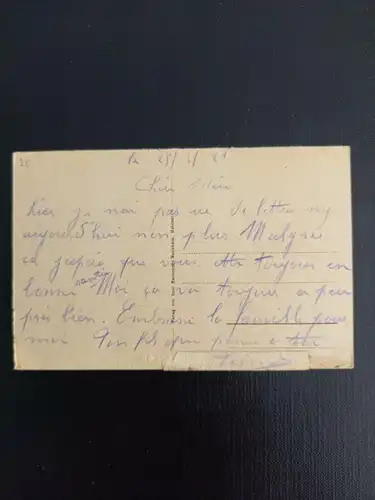 Le 25/4/21
Chère Mère
hier je n'ai pas eu de lettre ny
aujourd'hui non plus Malgrés
ca j'espère que vous ête toujours en
bonne santé Moi ça va toujours a peu
près bien. Embrasse la famille pour
moi Ton fils qui pense a toi